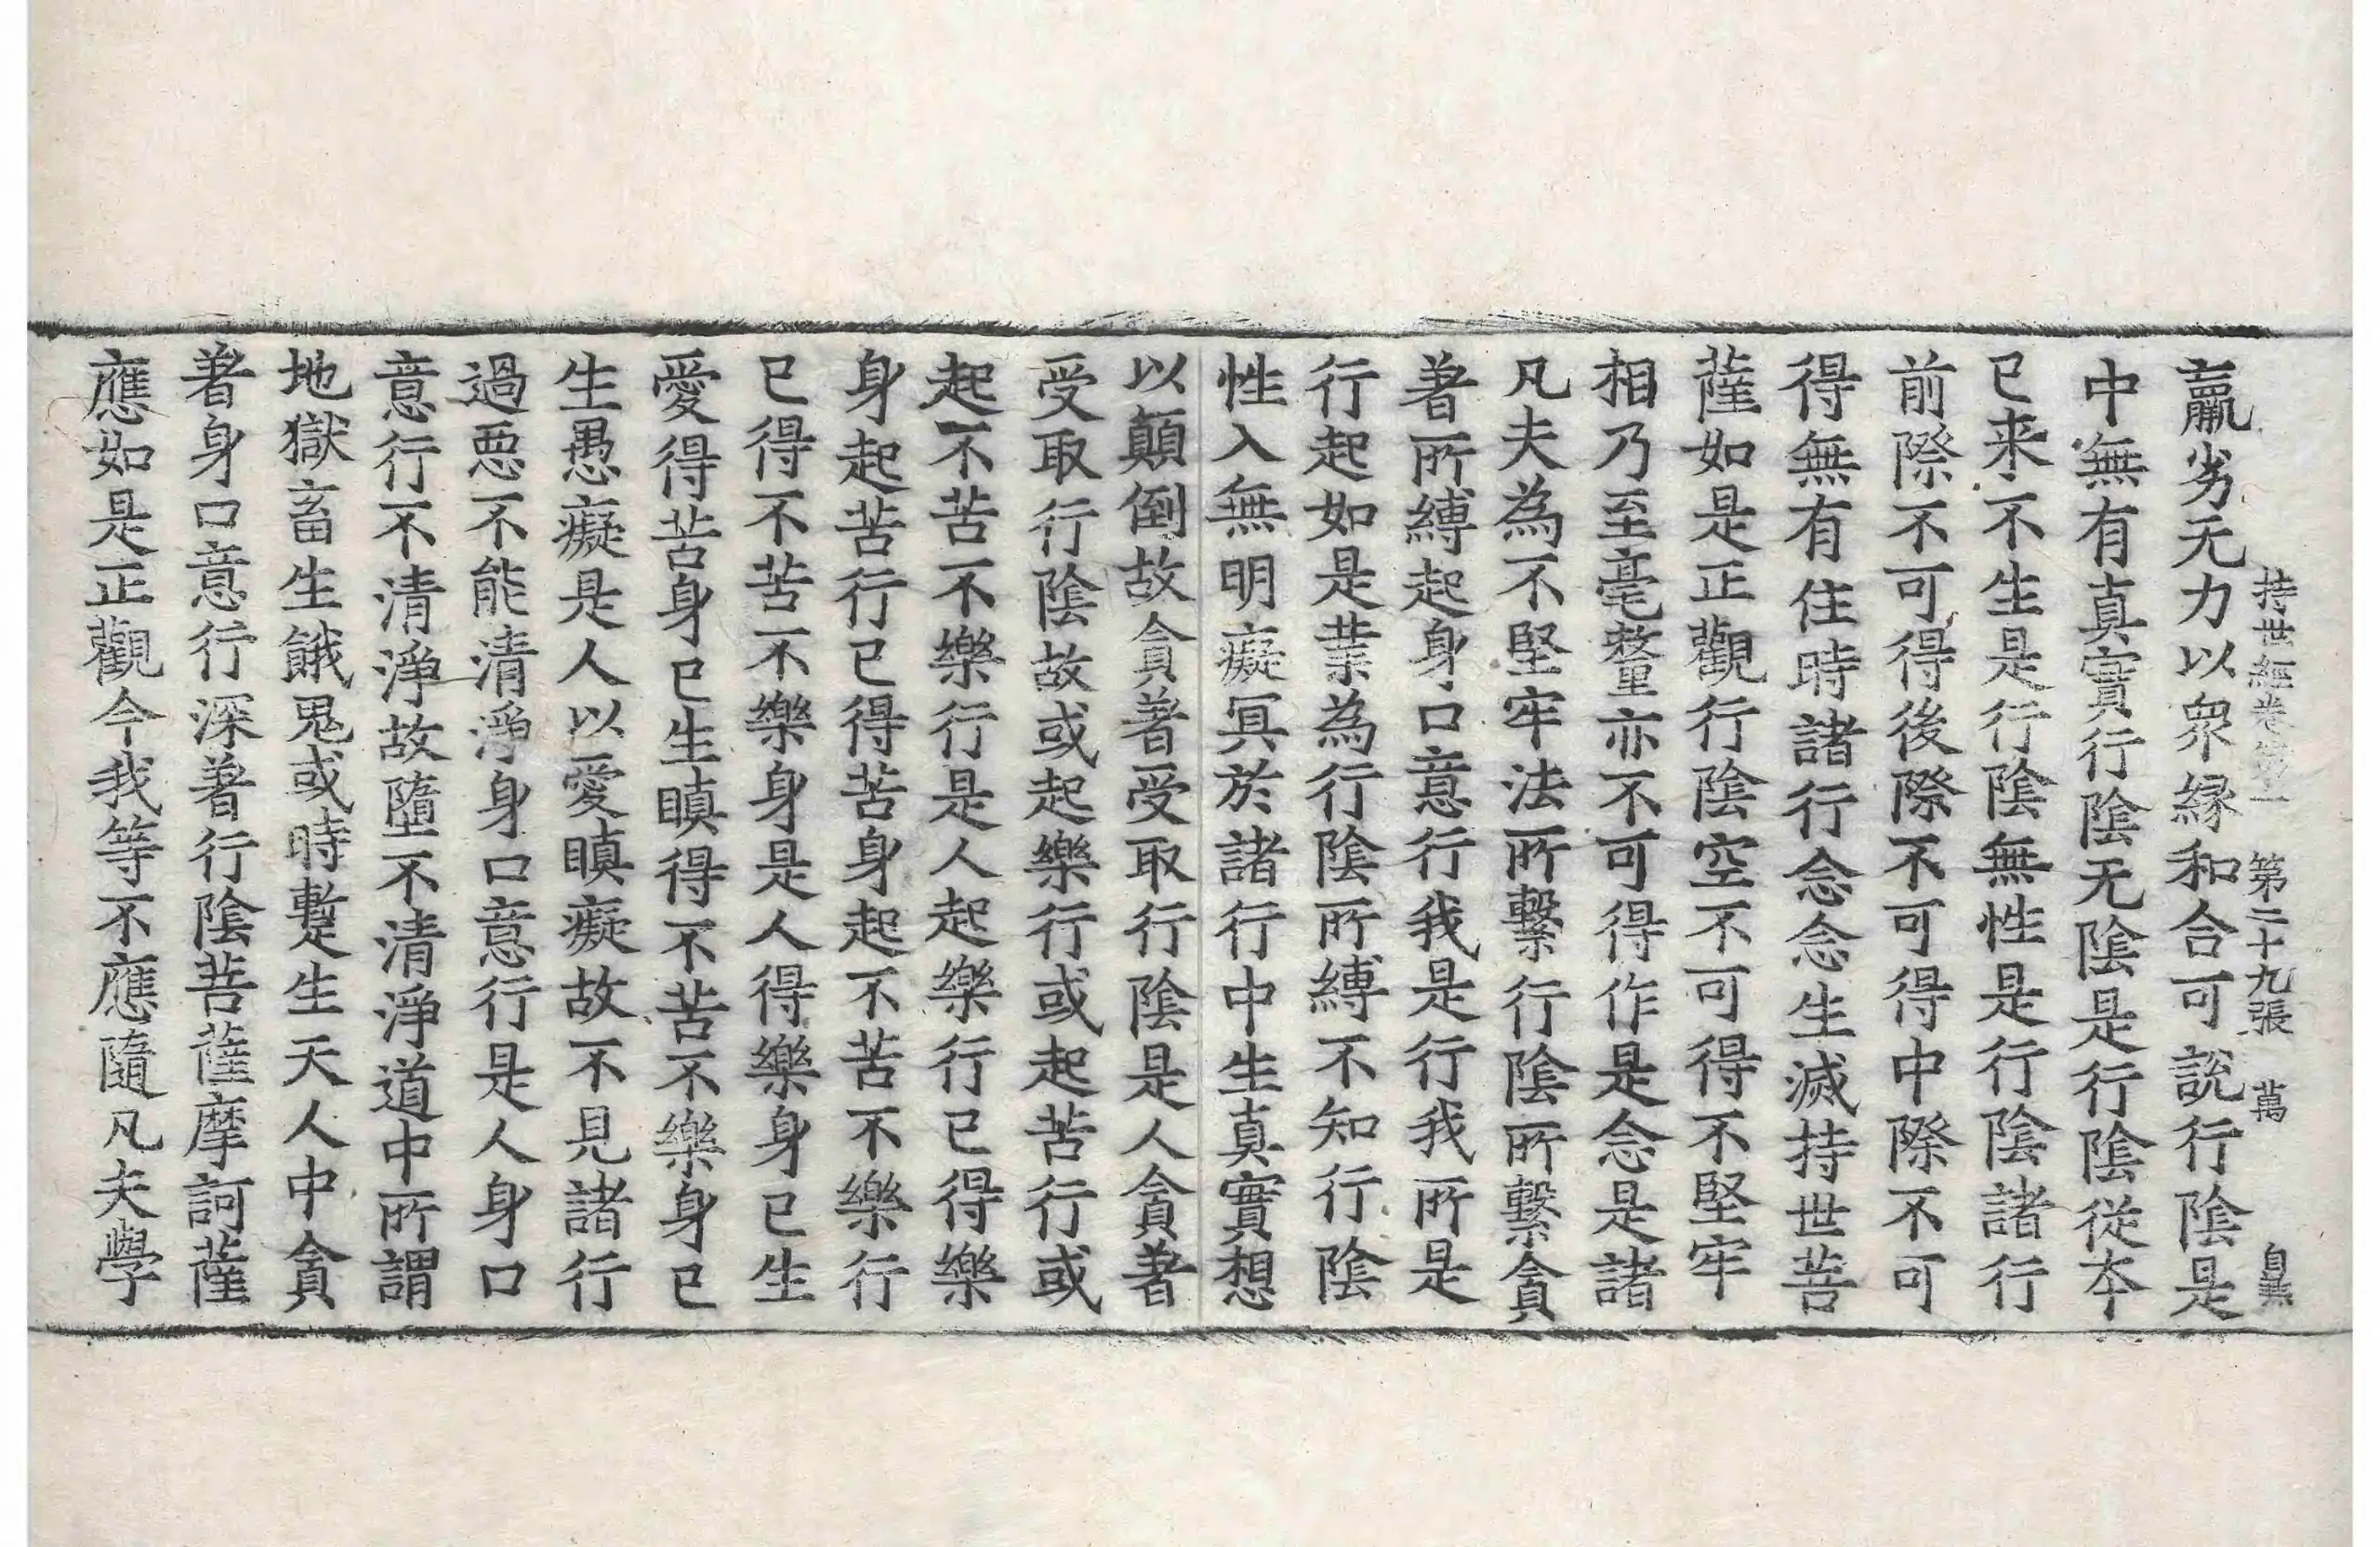 持世經卷第一　第二十九張　萬　自熏
羸劣无力以衆縁和合可說行陰是
中無有真實行陰无陰是行陰從本
已来不生是行陰無性是行陰諸行
前際不可得後際不可得中際不可
得無有住時諸行念念生滅持世菩
薩如是正觀行陰空不可得不堅牢
相乃至毫氂亦不可得作是念是諸
凡夫為不堅牢法所繫行陰所繫貪
著所縛起身口意行我是行我所是
行起如是業為行陰所縛不知行陰
性入無明癡冥於諸行中生真實想
以顛倒故貪著受取行陰是人貪著
受取行陰故或起樂行或起苦行或
起不苦不樂行是人起樂行已得樂
身起苦行已得苦身起不苦不樂行
已得不苦不樂身是人得樂身已生
愛得苦身已生瞋得不苦不樂身已
生愚癡是人以愛瞋癡故不見諸行
過惡不能清淨身口意行是人身口
意行不清淨故墮不清淨道中所謂
地獄畜生餓鬼或時暫生天人中貪
著身口意行深著行陰菩薩摩訶薩
應如是正觀今我等不應隨凡夫學